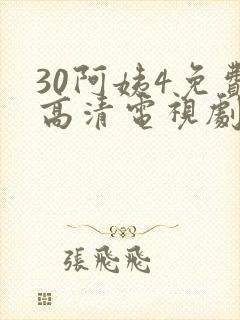 30阿姨4免費
高清電視劇
張飛飛